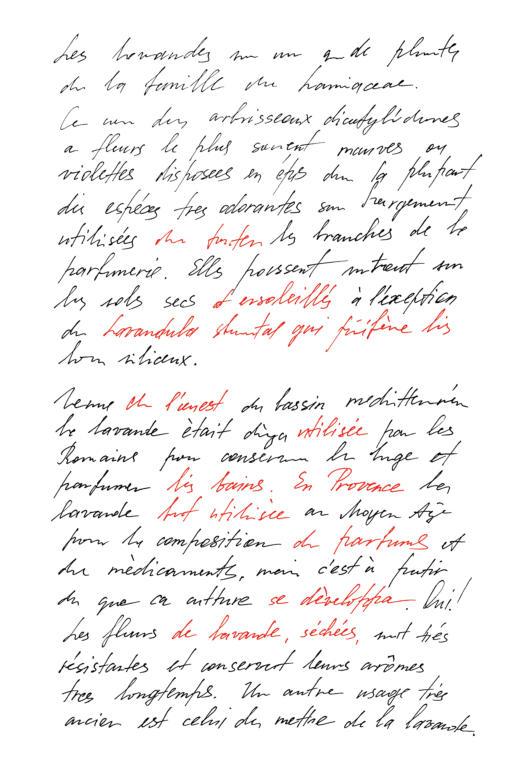 Les lavandes de plantes
de la famille du Lamiaceae.
Ce arbrisseaux dicotylédones
a fleurs le plus souvent mauves ou
violettes disposées en épis la plupart
des espèces tres odorantes largement
utilisées les branches de la
parfumerie. Elles poussent surtout sur
les sols secs ensoleillés à l'exception
de Lavandula qui préfère les
siliceux.
Venue de l'ouest du bassin
la lavande était utilisée par les
Romains pour conserver le linge et
parfumer les bains. En Provence la
lavande fut utilisée au Moyen Age
pour la composition de parfums et
de mèdicaments, mais c'est à
que sa culture se dèveloppa. Oui!
Les fleurs de lavande, séchées, sont trés
résistantes et conservent leurs arômes
tres longtemps. Un autre usage trés
ancien est celui de mettre de la lavande.